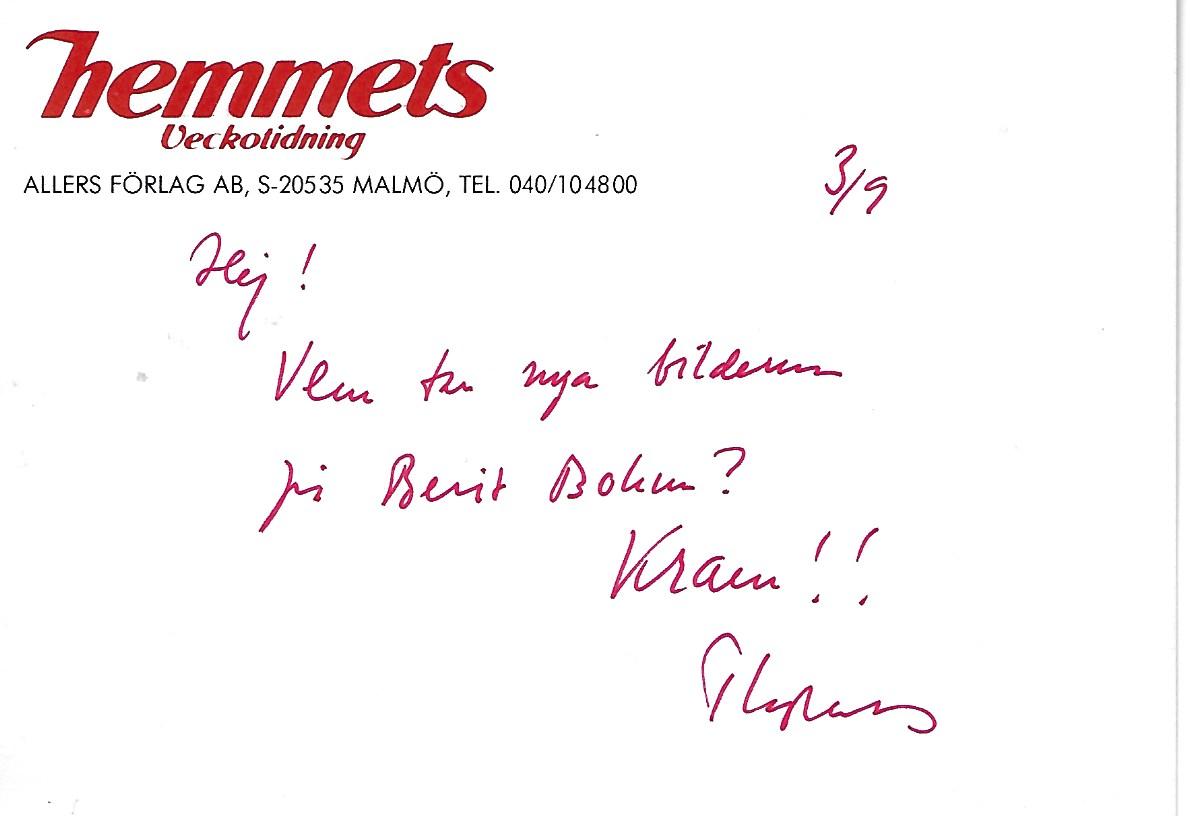 hemmets
Veckotidning
ALLERS FÖRLAG AB, S-20535 MALMÖ, TEL. 040/104800
3/9
Hej!
Vem tar nya bilderna
på Berit Bohm?
Kram!!